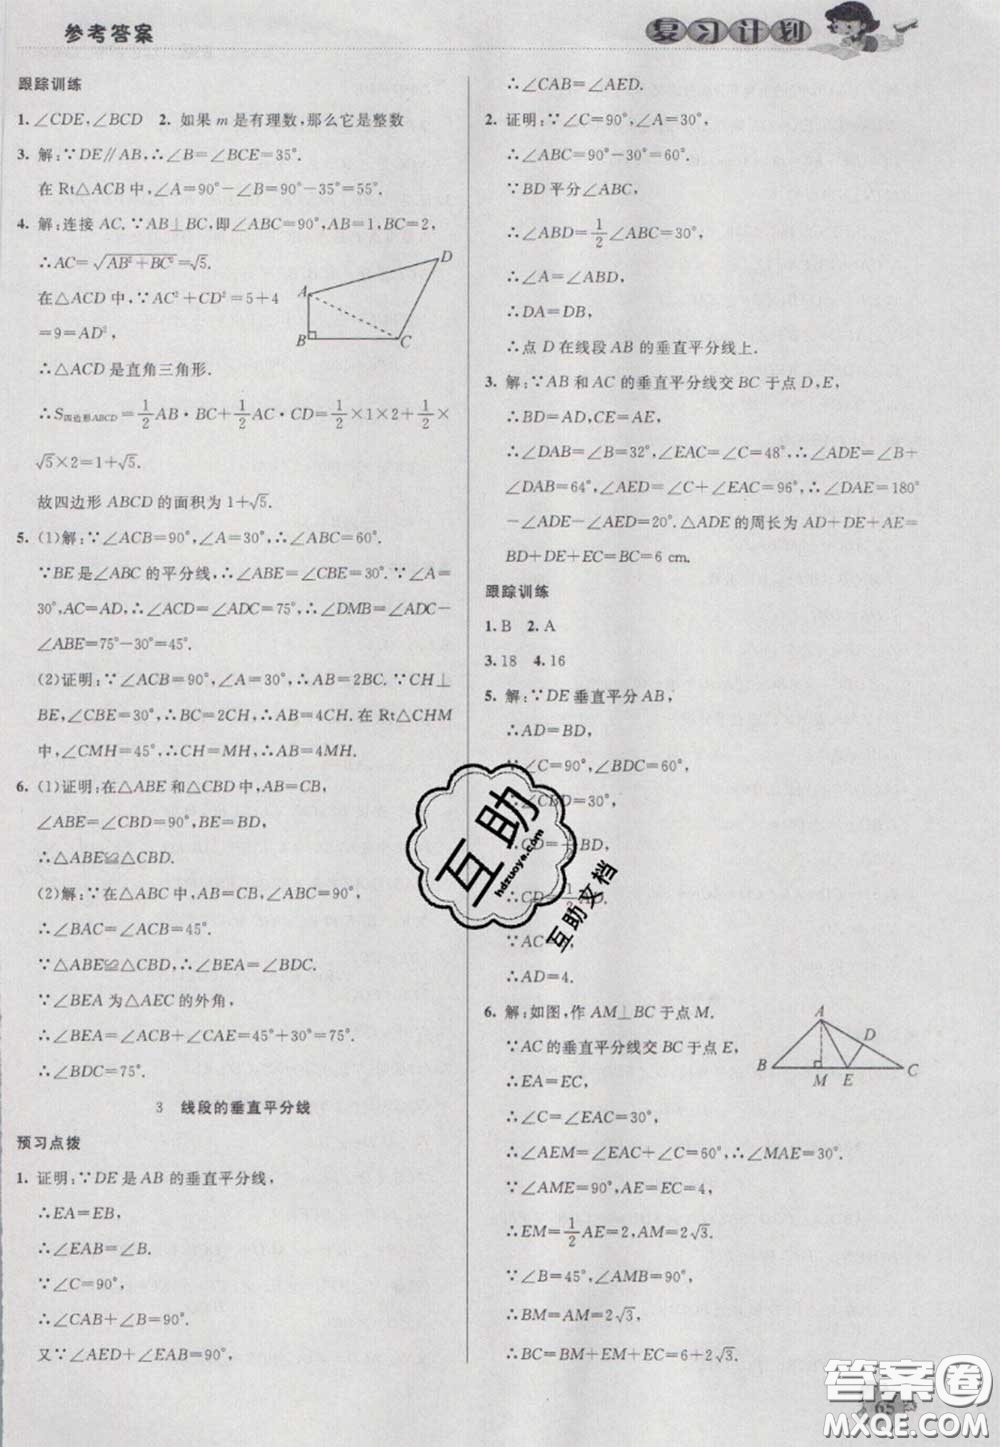 参考答案
复习计划
跟踪训练
1. ∠CDE,∠BCD 2. 如果 m 是有理数,那么它是整数
3. 解:∵DE∥AB,∴∠B=∠BCE=35°.
在 Rt△ACB 中,∠A=90°-∠B=90°-35°=55°.
4. 解:连接 AC.∵AB⊥BC,即∠ABC=90°,AB=1,BC=2,
∴AC=√(AB²+BC²)=√5.
在△ACD 中,∵AC²+CD²=5+4
=9=AD²,
∴△ACD 是直角三角形.
∴S四边形ABCD=1/2 AB·BC+1/2 AC·CD=1/2×1×2+1/2×
√5×2=1+√5.
故四边形 ABCD 的面积为 1+√5.
A
B
C
D
5. (1)解:∵∠ACB=90°,∠A=30°,∴∠ABC=60°.
∵BE是∠ABC 的平分线,∴∠ABE=∠CBE=30°.∵∠A=
30°,AC=AD,∴∠ACD=∠ADC=75°,∴∠DMB=∠ADC-
∠ABE=75°-30°=45°.
(2)证明:∵∠ACB=90°,∠A=30°,∴AB=2BC.∵CH⊥
BE,∠CBE=30°,∴BC=2CH,∴AB=4CH.在 Rt△CHM
中,∠CMH=45°,∴CH=MH,∴AB=4MH.
6. (1)证明:在△ABE 和△CBD 中,AB=CB,
∠ABE=∠CBD=90°,BE=BD,
∴△ABE≌△CBD.
(2)解:∵在△ABC 中,AB=CB,∠ABC=90°,
∴∠BAC=∠ACB=45°.
∵△ABE≌△CBD,∴∠BEA=∠BDC.
∵∠BEA 为△AEC 的外角,
∴∠BEA=∠ACB+∠CAE=45°+30°=75°,
∴∠BDC=75°.
3 线段的垂直平分线
预习点拨
1. 证明:∵DE 是 AB 的垂直平分线,
∴EA=EB,
∴∠EAB=∠B.
∵∠C=90°,
∴∠CAB+∠B=90°.
又∵∠AED+∠EAB=90°,
∴∠CAB=∠AED.
2. 证明:∵∠C=90°,∠A=30°,
∴∠ABC=90°-30°=60°.
∵BD 平分∠ABC,
∴∠ABD=1/2∠ABC=30°,
∴∠A=∠ABD,
∴DA=DB,
∴点 D 在线段 AB 的垂直平分线上.
3. 解:∵AB 和 AC 的垂直平分线交 BC 于点 D,E,
∴BD=AD,CE=AE,
∴∠DAB=∠B=32°,∠EAC=∠C=48°.∴∠ADE=∠B+
∠DAB=64°,∠AED=∠C+∠EAC=96°,∴∠DAE=180°
-∠ADE-∠AED=20°.△ADE 的周长为 AD+DE+AE=
BD+DE+EC=BC=6 cm.
跟踪训练
1. B 2. A
3. 18 4. 16
5. 解:∵DE 垂直平分 AB,
∴AD=BD,
∵∠C=90°,∠BDC=60°,
∴∠CBD=30°,
∴CD=1/2BD,
∴CD=1/2
∵AC
∴AD=4.
6. 解:如图,作 AM⊥BC 于点 M.
∵AC的垂直平分线交 BC 于点 E,
∴EA=EC,
∴∠C=∠EAC=30°,
∴∠AEM=∠EAC+∠C=60°,∴∠MAE=30°.
∵∠AME=90°,AE=EC=4,
∴EM=1/2 AE=2,AM=2√3.
∵∠B=45°,∠AMB=90°,
∴BM=AM=2√3,
∴BC=BM+EM+EC=6+2√3.
A
B
M
E
C
D
互助
hdzuoye.com
互助文档
65
答案圈
MXQE.COM